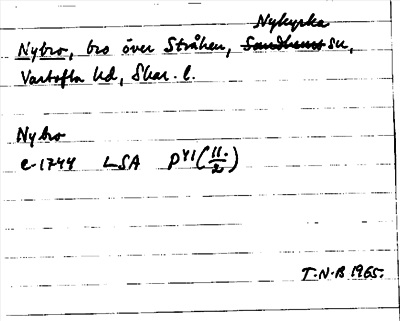 Nykyrka
Nybro, bro över Stråken, Sandhems sn,
Vartofta hd, Skar. l.
Nybro
c. 1744 LSA P41 (11./2)
T.N.B 1965.